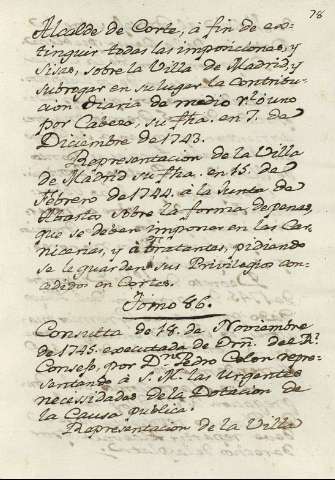 78
Alcalde de Corte, à fin de ex-
tinguir todas las imposiciones, y
sisas, sobre la Villa de Madrid, y
subrogar en su lugar la Contribu-
cion diaria de medio rl. ò uno
por Cabeza, su fha. en 7. de
Diciembre de 1743.
Representacion de la Villa
de Madrid su fha. en 15. de
Febrero de 1744. à la Junta de
Abastos sobre la forma, de penas,
que se deben imponer en las Car-
nicerias, y à tratantes, pidiendo
se le guarden sus Privilegios con-
cedidos en Cortes.
Tomo 86.
Consulta de 18. de Noviembre
de 1745. executada de Orn. del Rl.
Consejo, por Dn. Pedro Colon repre-
sentando à S. M. las Urgentes
necesidades de la Dotacion de
la Causa publica.
Representacion de la Villa